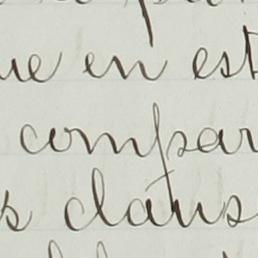 ue en est
compar
s dans